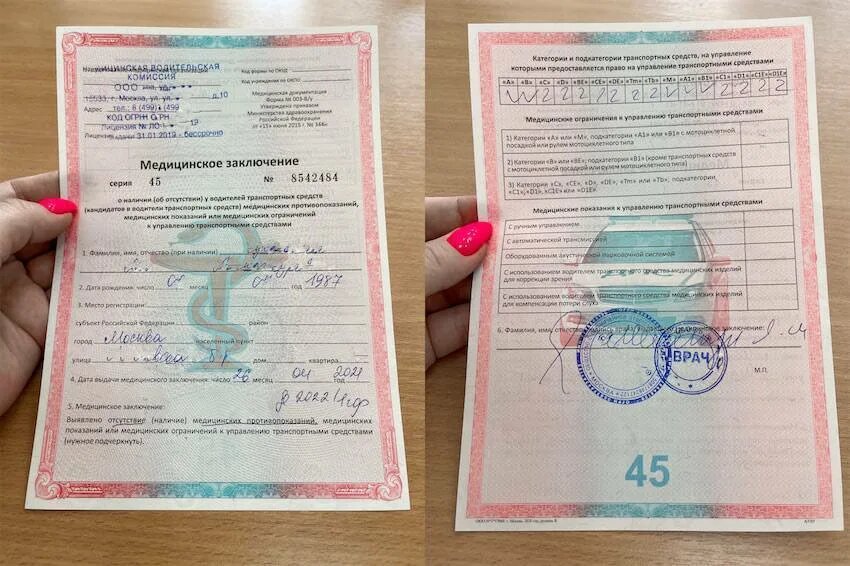 МЕДИЦИНСКАЯ ВОДИТЕЛЬСКАЯ
КОМИССИЯ
ООО
г. Москва, ул. д.10
Адрес тел.: 8 (499) (499
КОД ОГРН
Лицензия № ЛО- 19
Лицензия выдачи 31.01.2019 - бессрочно
Код формы по ОКУД
Код учреждения по ОКПО
Медицинская документация
Форма № 003-В/у
Утверждена приказом
Министерства здравоохранения
Российской Федерации
от «15» июня 2015 г. № 344н
Медицинское заключение
серия 45 № 8542484
о наличии (об отсутствии) у водителей транспортных средств
(кандидатов в водители транспортных средств) медицинских противопоказаний,
медицинских показаний или медицинских ограничений
к управлению транспортными средствами
1. Фамилия, имя, отчество (при наличии)
2. Дата рождения: число месяц год 1987
3. Место регистрации:
субъект Российской Федерации район
город Москва населенный пункт
улица дом квартира
4. Дата выдачи медицинского заключения: число 26 месяц 04 год 2021
до 2022/1год
5. Медицинское заключение:
Выявлено отсутствие (наличие) медицинских противопоказаний, медицинских
показаний или медицинских ограничений к управлению транспортными средствами
(нужное подчеркнуть).
Категории и подкатегории транспортных средств, на управление
которыми предоставляется право на управление транспортными средствами
«A» «B» «C» «D» «BE» «CE» «DE» «Tm» «Tb» «M» «A1» «B1» «C1» «D1» «C1E» «D1E»
Медицинские ограничения к управлению транспортными средствами
1) Категории «A» или «M», подкатегории «A1» или «B1» с мотоциклетной
посадкой или рулем мотоциклетного типа
2) Категории «B» или «BE», подкатегории «B1» (кроме транспортных средств
с мотоциклетной посадкой или рулем мотоциклетного типа)
3) Категории «C», «CE», «D», «DE», «Tm» или «Tb», подкатегории
«C1», «D1», «C1E» или «D1E»
Медицинские показания к управлению транспортными средствами
С ручным управлением
С автоматической трансмиссией
Оборудованным акустической парковочной системой
С использованием водителем транспортного средства медицинских изделий
для коррекции зрения
С использованием водителем транспортного средства медицинских изделий
для компенсации потери слуха
6. Фамилия, имя, отчество, подпись врача, медицинское заключение:
ВРАЧ
М.П.
45